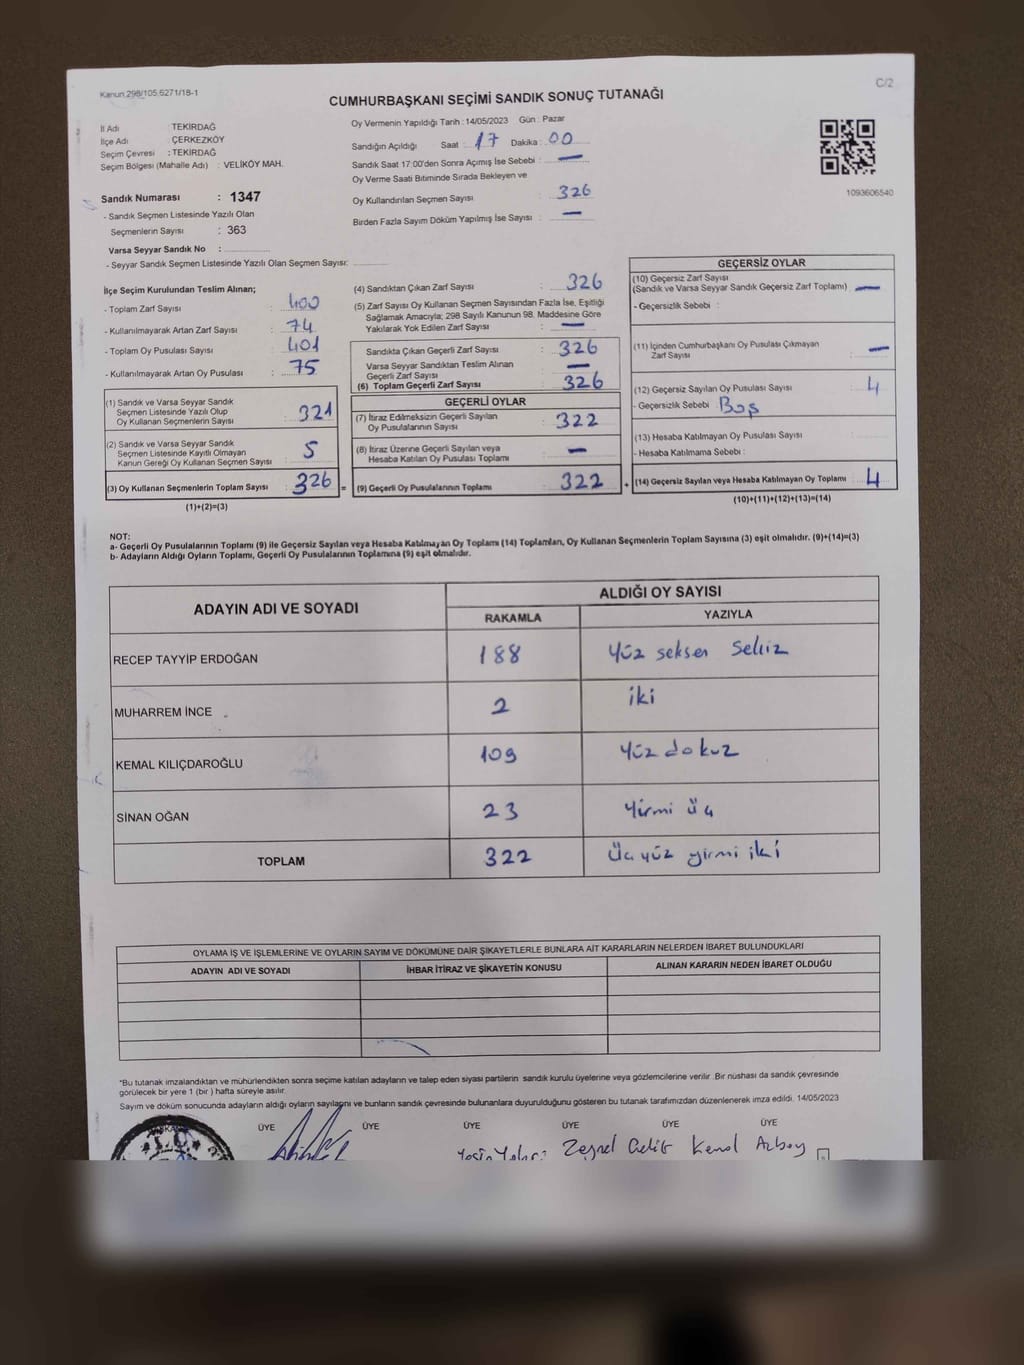 Kanun 298/105,6271/18-1
C/2
CUMHURBAŞKANI SEÇİMİ SANDIK SONUÇ TUTANAĞI
İl Adı : TEKİRDAĞ
İlçe Adı : ÇERKEZKÖY
Seçim Çevresi : TEKİRDAĞ
Seçim Bölgesi (Mahalle Adı) : VELİKÖY MAH.
Sandık Numarası : 1347
- Sandık Seçmen Listesinde Yazılı Olan
Seçmenlerin Sayısı : 363
Varsa Seyyar Sandık No :
- Seyyar Sandık Seçmen Listesinde Yazılı Olan Seçmen Sayısı:
Oy Vermenin Yapıldığı Tarih : 14/05/2023 Gün : Pazar
Sandığın Açıldığı Saat : 17 Dakika : 00
Sandık Saat 17:00'den Sonra Açımış İse Sebebi : —
Oy Verme Saati Bitiminde Sırada Bekleyen ve
Oy Kullandırılan Seçmen Sayısı : 326
Birden Fazla Sayım Döküm Yapılmış İse Sayısı : —
1093606540
İlçe Seçim Kurulundan Teslim Alınan;
- Toplam Zarf Sayısı : 400
- Kullanılmayarak Artan Zarf Sayısı : 74
- Toplam Oy Pusulası Sayısı : 401
- Kullanılmayarak Artan Oy Pusulası : 75
(1) Sandık ve Varsa Seyyar Sandık
Seçmen Listesinde Yazılı Olup
Oy Kullanan Seçmenlerin Sayısı : 321
(2) Sandık ve Varsa Seyyar Sandık
Seçmen Listesinde Kayıtlı Olmayan
Kanun Gereği Oy Kullanan Seçmen Sayısı : 5
(3) Oy Kullanan Seçmenlerin Toplam Sayısı : 326 =
(1)+(2)=(3)
(4) Sandıktan Çıkan Zarf Sayısı : 326
(5) Zarf Sayısı Oy Kullanan Seçmen Sayısından Fazla İse, Eşitliği
Sağlamak Amacıyla; 298 Sayılı Kanunun 98. Maddesine Göre
Yakılarak Yok Edilen Zarf Sayısı : —
Sandıkta Çıkan Geçerli Zarf Sayısı : 326
Varsa Seyyar Sandıktan Teslim Alınan
Geçerli Zarf Sayısı : —
(6) Toplam Geçerli Zarf Sayısı : 326
GEÇERLİ OYLAR
(7) İtiraz Edilmeksizin Geçerli Sayılan
Oy Pusulalarının Sayısı : 322
(8) İtiraz Üzerine Geçerli Sayılan veya
Hesaba Katılan Oy Pusulası Toplamı : —
(9) Geçerli Oy Pusulalarının Toplamı : 322 +
GEÇERSİZ OYLAR
(10) Geçersiz Zarf Sayısı
(Sandık ve Varsa Seyyar Sandık Geçersiz Zarf Toplamı) : —
- Geçersizlik Sebebi :
(11) İçinden Cumhurbaşkanı Oy Pusulası Çıkmayan
Zarf Sayısı : —
(12) Geçersiz Sayılan Oy Pusulası Sayısı : 4
- Geçersizlik Sebebi : Boş
(13) Hesaba Katılmayan Oy Pusulası Sayısı :
- Hesaba Katılmama Sebebi :
(14) Geçersiz Sayılan veya Hesaba Katılmayan Oy Toplamı : 4
(10)+(11)+(12)+(13)=(14)
NOT:
a- Geçerli Oy Pusulalarının Toplamı (9) ile Geçersiz Sayılan veya Hesaba Katılmayan Oy Toplamı (14) Toplamları, Oy Kullanan Seçmenlerin Toplam Sayısına (3) eşit olmalıdır. (9)+(14)=(3)
b- Adayların Aldığı Oyların Toplamı, Geçerli Oy Pusulalarının Toplamına (9) eşit olmalıdır.
ADAYIN ADI VE SOYADI ALDIĞI OY SAYISI
RAKAMLA YAZIYLA
RECEP TAYYİP ERDOĞAN 188 Yüz seksen sekiz
MUHARREM İNCE 2 iki
KEMAL KILIÇDAROĞLU 109 Yüz dokuz
SİNAN OĞAN 23 Yirmi üç
TOPLAM 322 Üç yüz yirmi iki
OYLAMA İŞ VE İŞLEMLERİNE VE OYLARIN SAYIM VE DÖKÜMÜNE DAİR ŞİKAYETLERLE BUNLARA AİT KARARLARIN NELERDEN İBARET BULUNDUKLARI
ADAYIN ADI VE SOYADI İHBAR İTİRAZ VE ŞİKAYETİN KONUSU ALINAN KARARIN NEDEN İBARET OLDUĞU
*Bu tutanak imzalandıktan ve mühürlendikten sonra seçime katılan adayların ve talep eden siyasi partilerin sandık kurulu üyelerine veya gözlemcilerine verilir. Bir nüshası da sandık çevresinde
görülecek bir yere 1 (bir) hafta süreyle asılır.
Sayım ve döküm sonucunda adayların aldığı oyların sayılarını ve bunların sandık çevresinde bulunanlara duyurulduğunu gösteren bu tutanak tarafımızdan düzenlenerek imza edildi. 14/05/2023
ÜYE ÜYE ÜYE ÜYE ÜYE ÜYE
Zeynel Çelik
T.C.